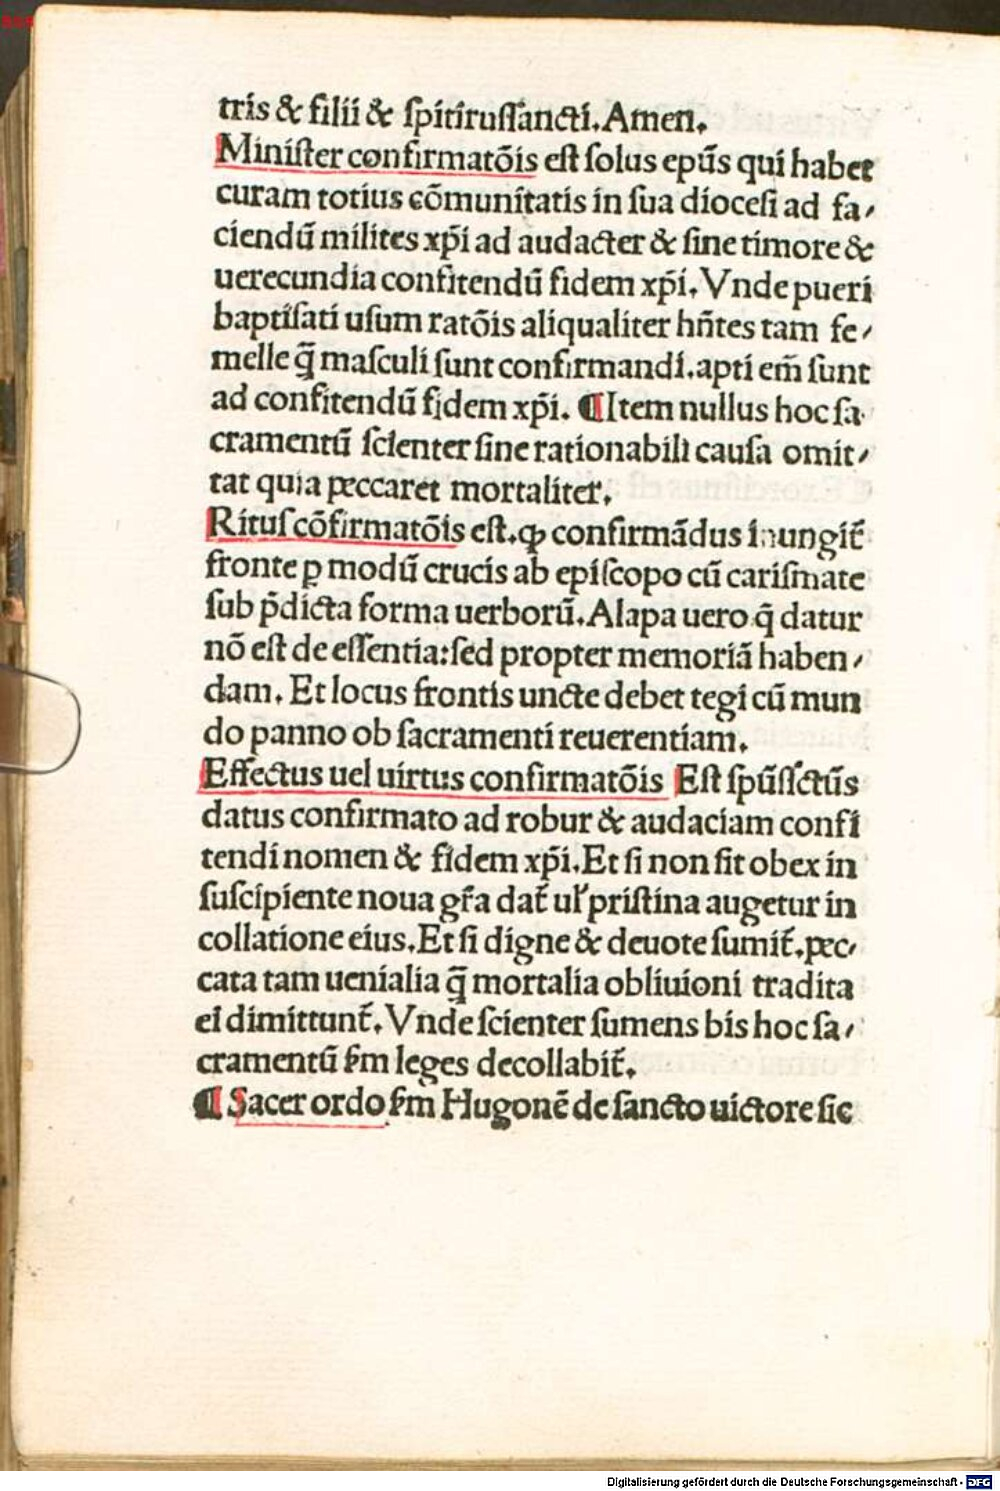 tris & filii & ſpiritruſſancti. Amen.
Miniſter confirmatōis eſt ſolus epūs qui habet
curam totius cōmunitatis in ſua dioceſi ad fa⸗
ciendū milites xp̄i ad audacter & ſine timore &
uerecundia confitendū fidem xp̄i. Vnde pueri
baptiſati uſum ratōis aliqualiter hn̄tes tam fe⸗
melle q̄ maſculi ſunt confirmandi. apti em̄ ſunt
ad confitendū fidem xp̄i. ¶ Item nullus hoc ſa⸗
cramentū ſcienter ſine rationabili cauſa omit⸗
tat quia peccaret mortaliter.
Rituſ cōfirmatōis eſt. ꝙ confirmādus inungit̄
fronte ꝑ modū crucis ab epiſcopo cū cariſmate
ſub p̄dicta forma uerborū. Alapa uero q̄ datur
nō eſt de eſſentia: ſed propter memoriā haben⸗
dam. Et locus frontis uncte debet tegi cū mun
do panno ob ſacramenti reuerentiam.
Effectus uel uirtus confirmatōis Eſt ſpūſſctūs
datus confirmato ad robur & audaciam confi
tendi nomen & fidem xp̄i. Et ſi non ſit obex in
ſuſcipiente noua gr̄a dat̄ ul̛ priſtina augetur in
collatione eius. Et ſi digne & deuote ſumit̄. pec⸗
cata tam uenialia q̄ mortalia obliuioni tradita
ei dimittunt̄. Vnde ſcienter ſumens bis hoc ſa⸗
cramentū ẜm leges decollabit̄.
¶ Sacer ordo ẜm Hugonē de ſancto uictore ſic
Digitalisierung gefördert durch die Deutsche Forschungsgemeinschaft - DFG